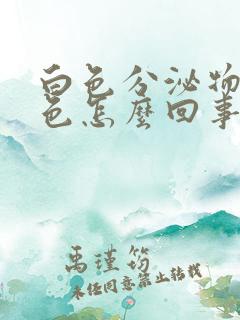 白色分泌物
色怎麼回事
禹瑾筠
未经同意禁止转载